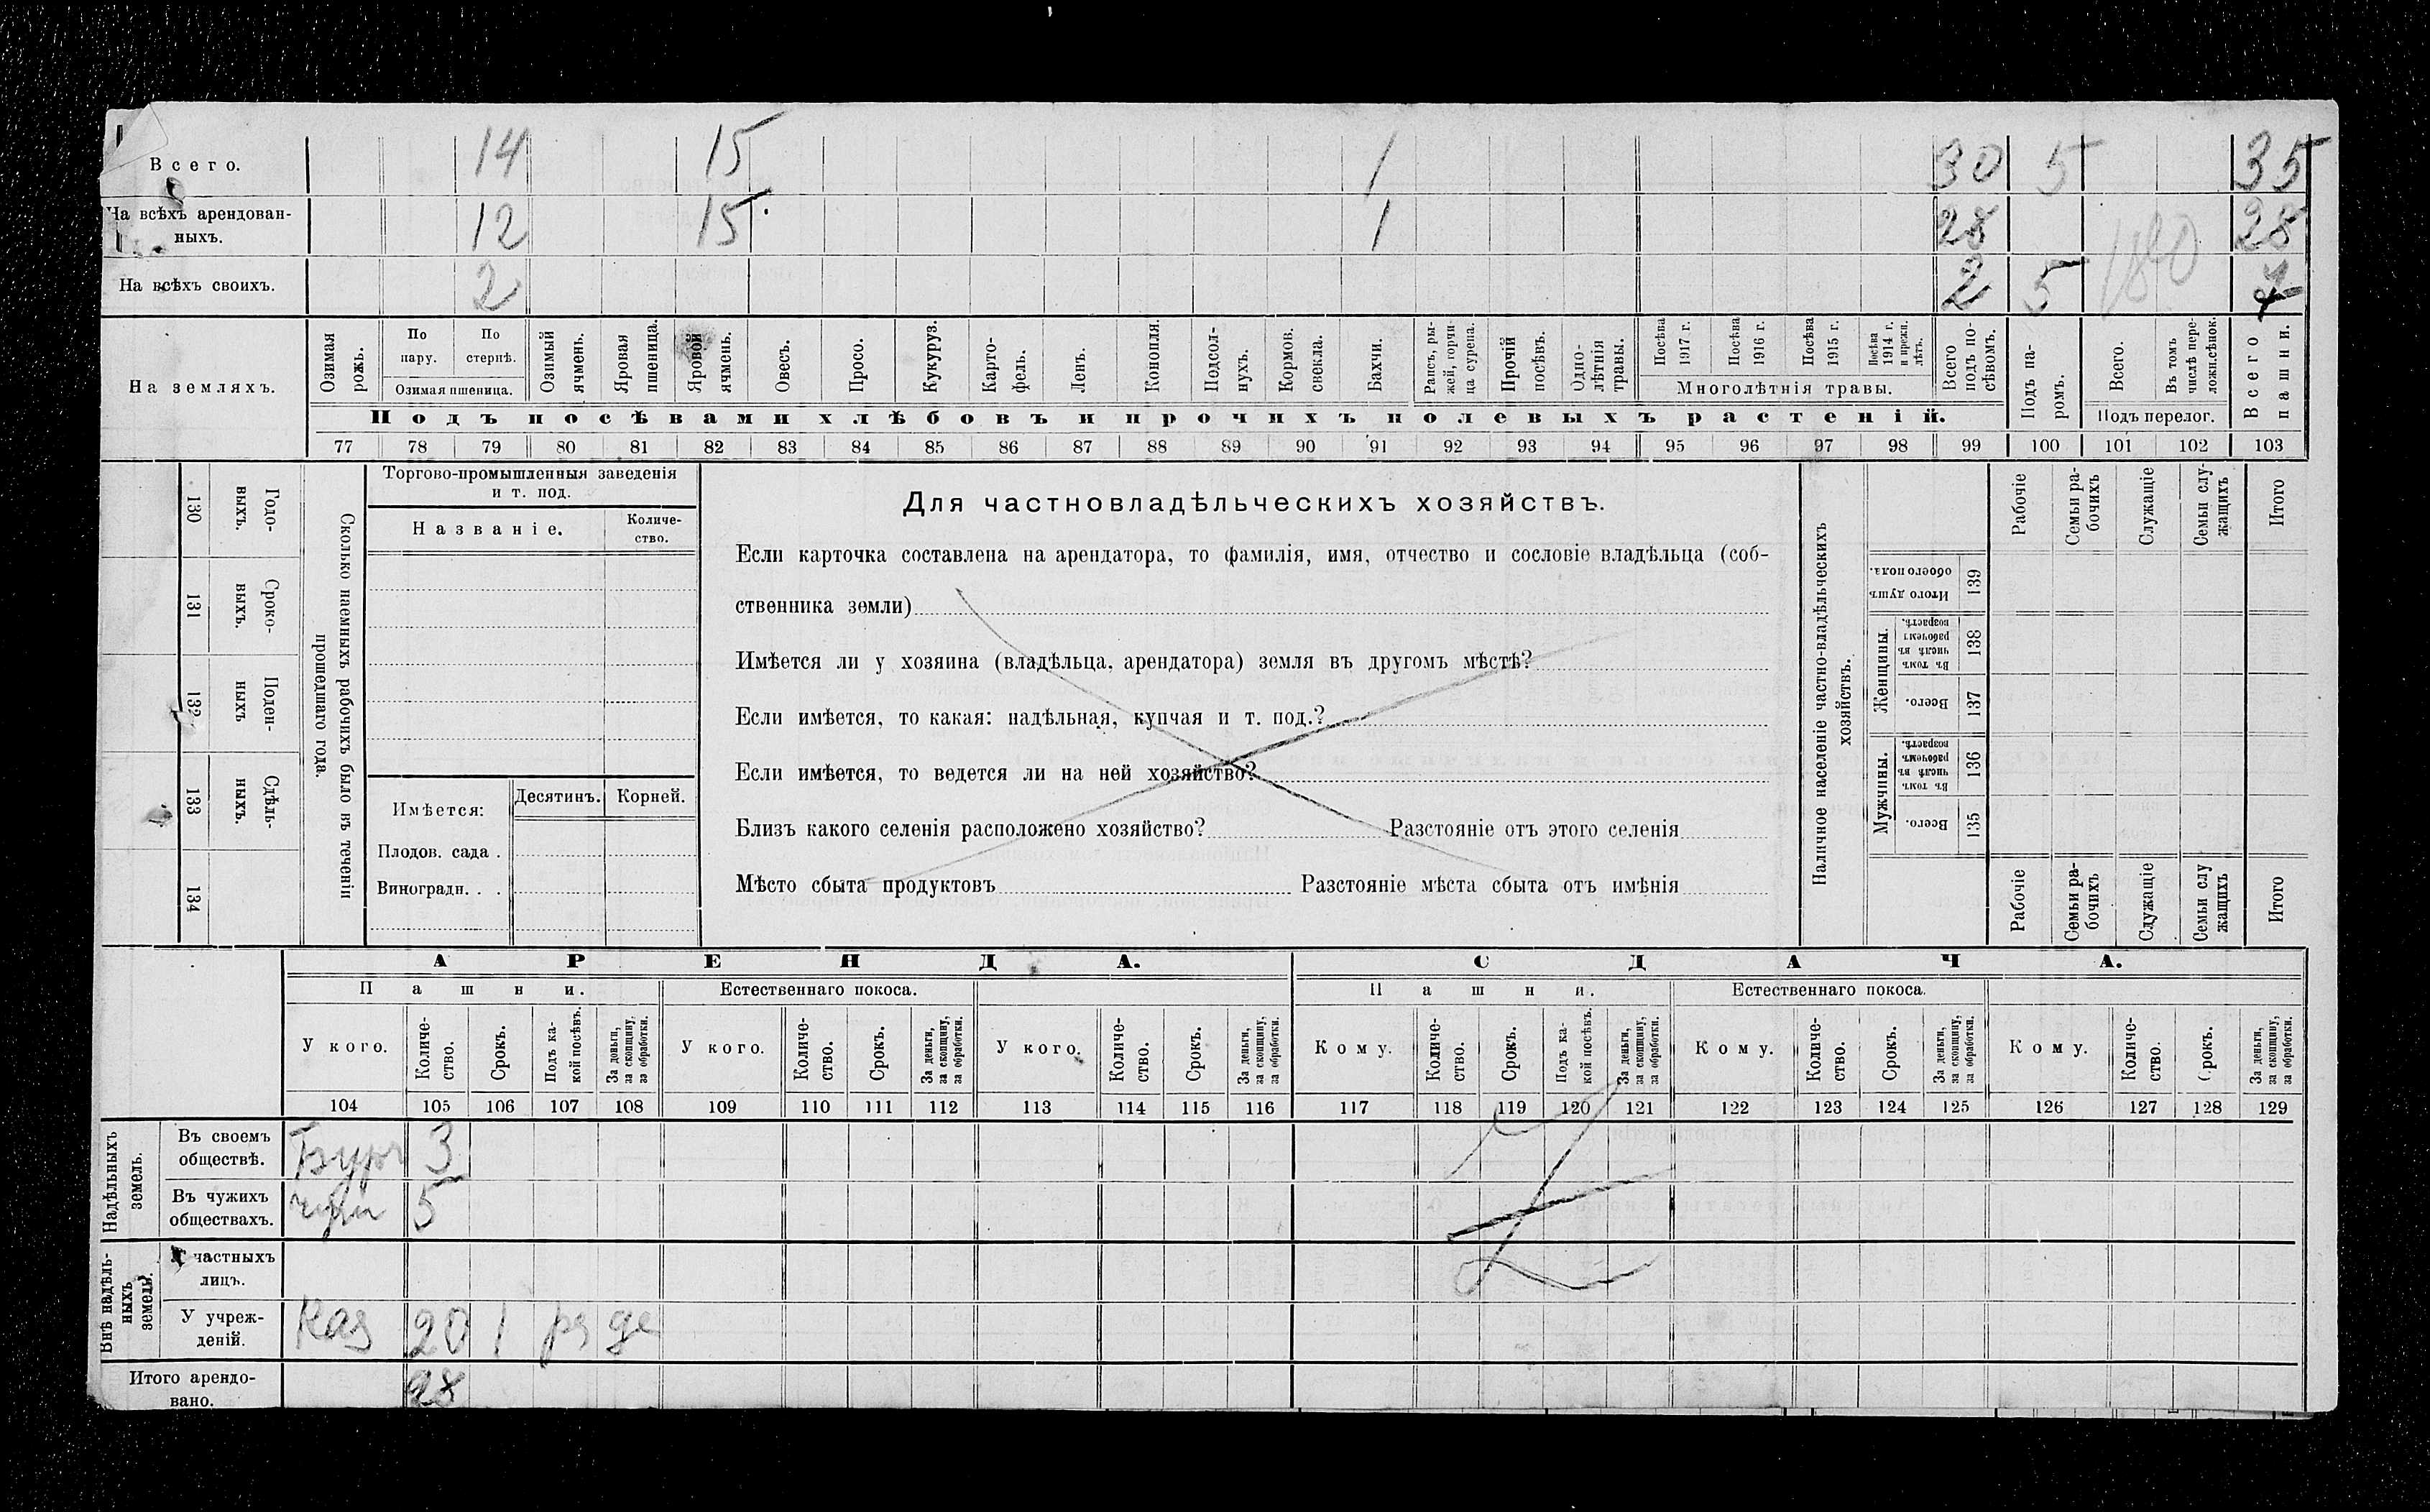 Всего. 14 15 1 30 5 35
На всѣхъ арендован-
ныхъ. 12 15 1 28 28
На всѣхъ своихъ. 2 2 5 7
На земляхъ.
Озимая рожь.
По пару.
По стернѣ.
Озимая пшеница.
Озимый ячмень.
Яровая пшеница.
Яровой ячмень.
Овесъ.
Просо.
Кукуруз.
Карто-
фель.
Ленъ.
Конопля.
Подсол-
нухъ.
Кормов. свекла.
Бахчи.
Рапсъ, ры-
жей, горчи-
ца сурепа.
Прочій посѣвъ.
Одно-
лѣтнія травы.
Посѣва 1917 г.
Посѣва 1916 г.
Посѣва 1915 г.
Посѣва 1914 г. и прежн. лѣтъ.
Многолѣтнія травы.
Всего подъ по-
сѣвомъ.
Подъ па-
ромъ.
Всего.
Въ томъ числѣ пере-
ложн.сѣнок.
Подъ перелог.
Всего пашни.
Подъ посѣвами хлѣбовъ и прочихъ полевыхъ растеній.
77 78 79 80 81 82 83 84 85 86 87 88 89 90 91 92 93 94 95 96 97 98 99 100 101 102 103
130 Годо-
выхъ.
131 Сроко-
выхъ.
132 Поден-
ныхъ
133 Сдѣль-
ныхъ.
134
Сколько наемныхъ рабочихъ было въ теченіи
прошедшаго года.
Торгово-промышленныя заведенія
и т. под.
Названіе.
Количе-
ство.
Имѣется: Десятинъ. Корней.
Плодов. сада .
Виноградн. . .
Для частновладѣльческихъ хозяйствъ.
Если карточка составлена на арендатора, то фамилія, имя, отчество и сословіе владѣльца (соб-
ственника земли)
Имѣется ли у хозяина (владѣльца, арендатора) земля въ другомъ мѣстѣ?
Если имѣется, то какая: надѣльная, купчая и т. под.?
Если имѣется, то ведется ли на ней хозяйство?
Близъ какого селенія расположено хозяйство? Разстояніе отъ этого селенія
Мѣсто сбыта продуктовъ Разстояніе мѣста сбыта отъ имѣнія
Наличное населеніе частно-владѣльческихъ
хозяйствъ.
Рабочіе
Семьи ра-
бочихъ
Служащіе
Семьи слу-
жащихъ
Итого
Итого душъ обоего пола. 139
Женщины.
Въ томъ числѣ въ рабочемъ возрастѣ. 138
Всего. 137
Мужчины.
Въ томъ числѣ въ рабочемъ возрастѣ. 136
Всего. 135
Рабочіе
Семьи ра-
бочихъ
Служащіе
Семьи слу
жащихъ
Итого
АРЕНДА. СДАЧА.
Пашни. Естественнаго покоса. Пашни. Естественнаго покоса.
У кого.
Количе-
ство.
Срокъ.
Подъ ка-
кой посѣвъ.
За деньги, за скопщину, за обработки.
У кого.
Количе-
ство.
Срокъ.
За деньги, за скопщину, за обработки.
У кого.
Количе-
ство.
Срокъ.
За деньги, за скопщину, за обработки.
Кому.
Количе-
ство.
Срокъ.
Подъ ка-
кой посѣвъ.
За деньги, за скопщину, за обработки.
Кому.
Количе-
ство.
Срокъ.
За деньги, за скопщину, за обработки.
Кому.
Количе-
ство.
Срокъ.
За деньги, за скопщину, за обработки.
104 105 106 107 108 109 110 111 112 113 114 115 116 117 118 119 120 121 122 123 124 125 126 127 128 129
Надѣльныхъ
земель.
Въ своемъ
обществѣ. 3
Въ чужихъ
обществахъ. 5
Внѣ надѣль-
ныхъ
земель.
У частныхъ
лицъ.
У учреж-
деній. Каз 20 1 де
Итого арендо-
вано. 28